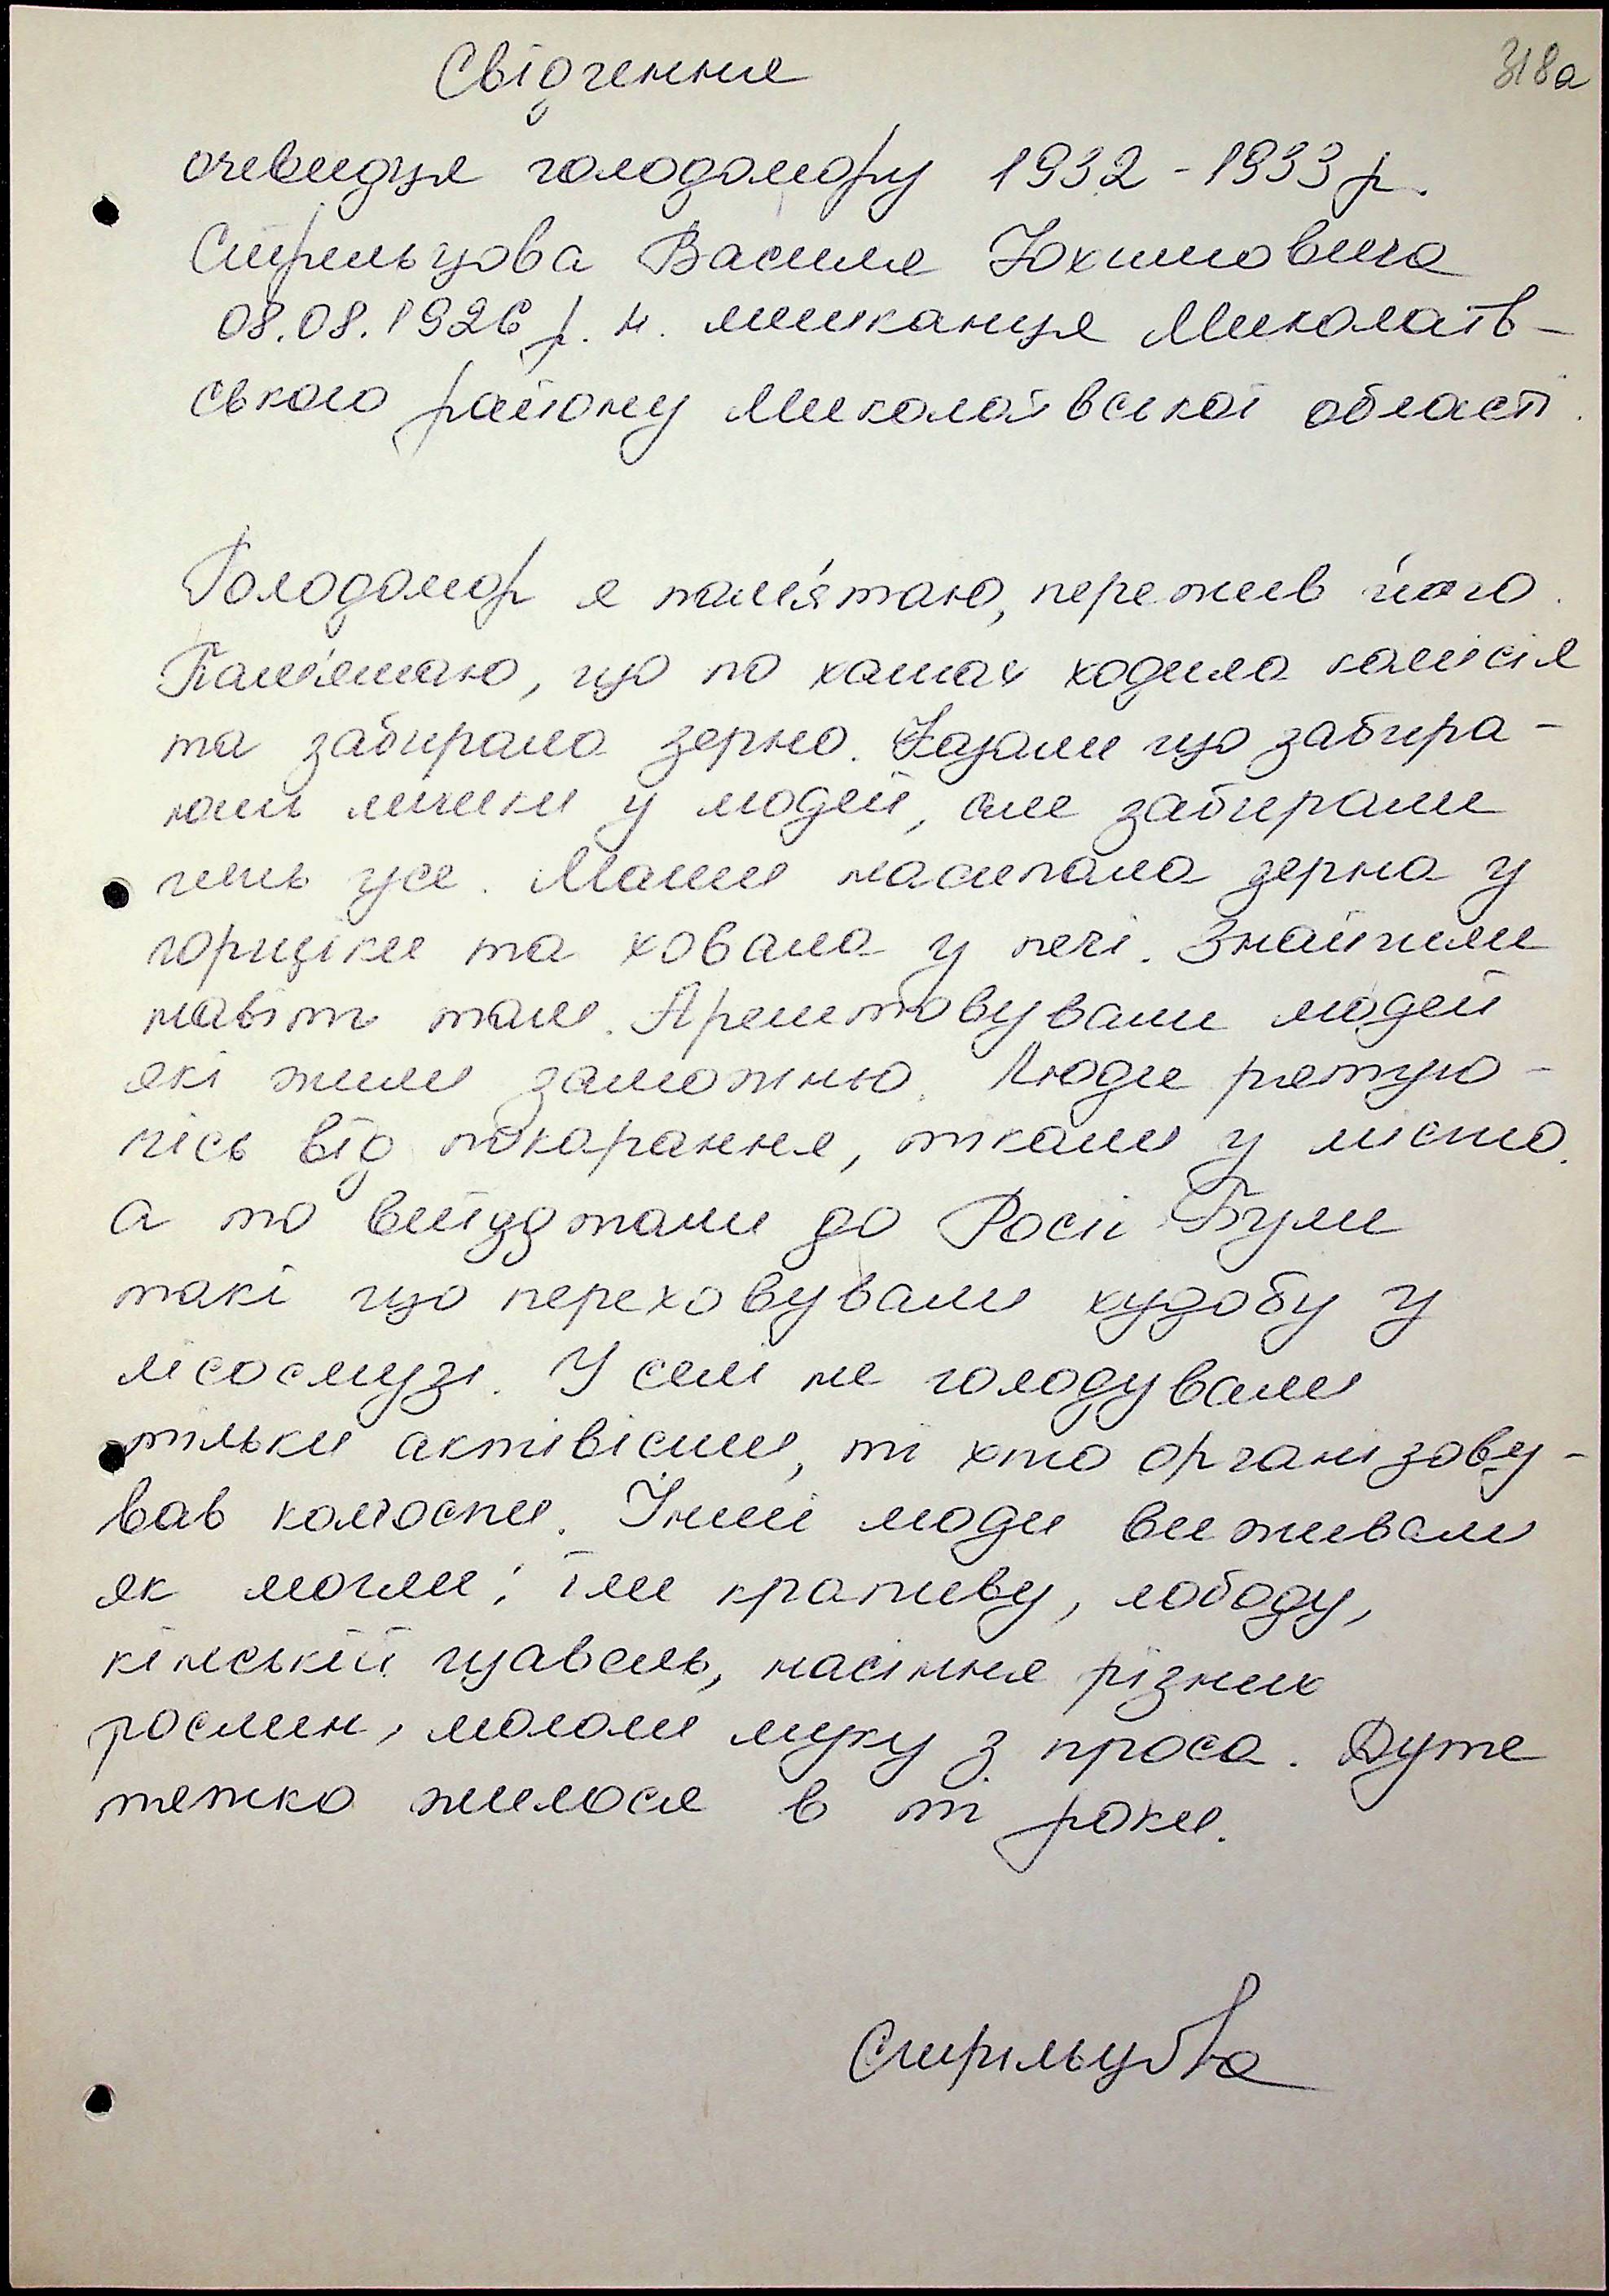 318а
Свідчення
очевидця голодомору 1932-1933 р.
Стрельцова Василя Юхимовича
08.08.1926 р. н. мешканця Миколаїв-
ського району Миколаївської області.
Голодомор я пам'ятаю, пережив його.
Пам'ятаю, що по хатах ходила комісія
та забирала зерно. Казали що забира-
ють лишки у людей, але забирали
геть усе. Мати насипала зерна у
горщики та ховала у печі. Знайшли
навіть там. Арештовували людей
які жили заможньо. Люди рятую-
чись від покарання, тікали у місто.
а то виїзджали до Росіі Були
такі що переховували худобу у
лісосмузі. У селі не голодували
тільки актівісти, ті хто організову-
вав колгоспи. Інші люди виживали
як могли; їли крапиву, лободу,
кінський щавель, насіння різних
рослин, мололи муку з проса. Дуже
тяжко жилося в ті роки.